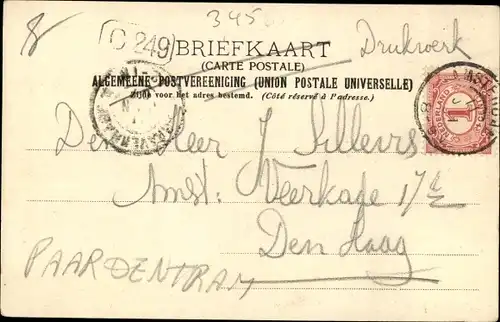 8
C 249
345
BRIEFKAART
Drukwerk
(CARTE POSTALE)
ALGEMEENE POSTVEREENIGING (UNION POSTALE UNIVERSELLE)
Zijde voor het adres bestemd. (Côté réservé à l'adresse.)
NEDERLAND
1
Den Heer J Sillevis
Amst. Veerkade 17
Den Haag
PAARDENTRAM